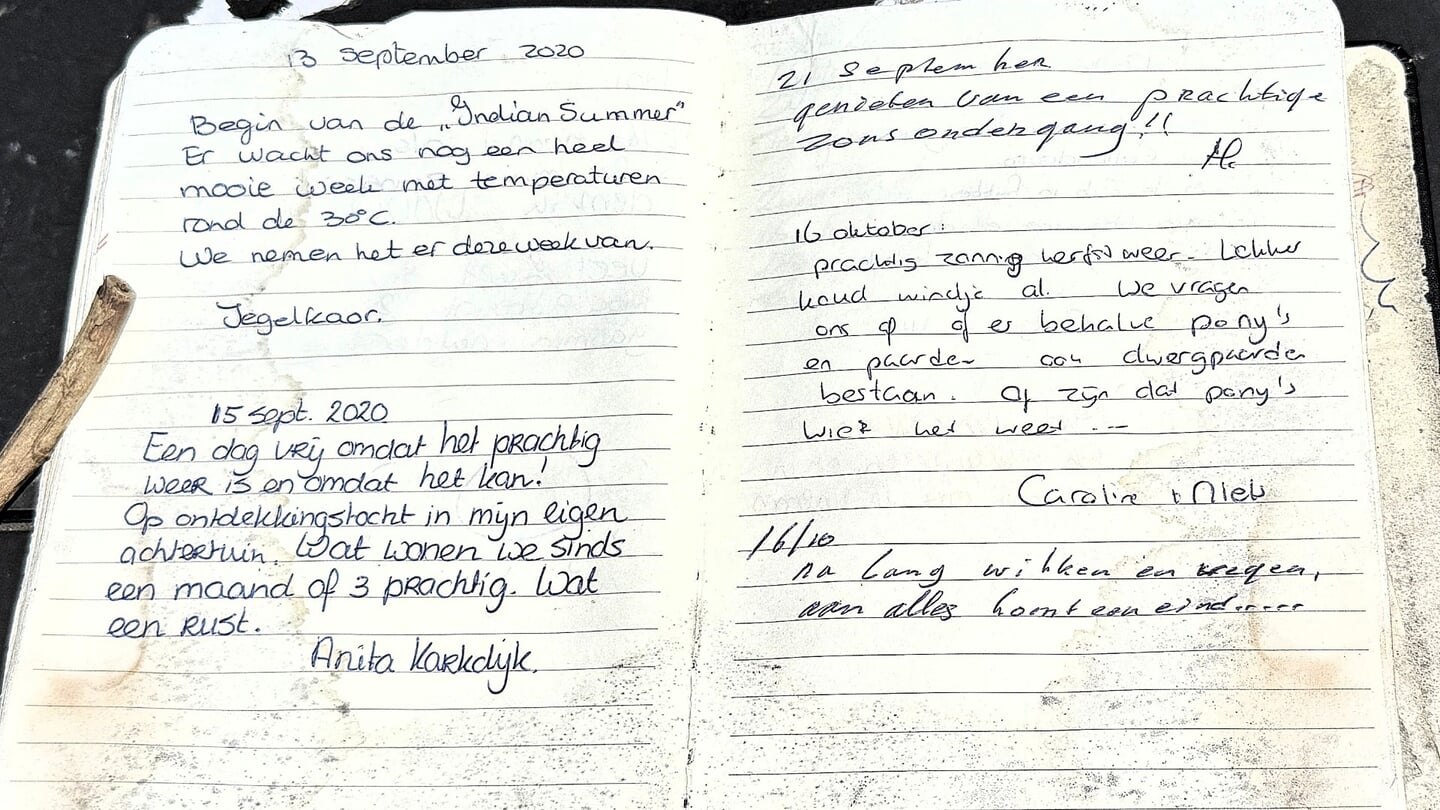 13 september 2020
Begin van de „Indian Summer"
Er wacht ons nog een heel
mooie week met temperaturen
rond de 30°C.
We nemen het er deze week van.
Jegelkaor.
15 sept. 2020
Een dag vrij omdat het prachtig
weer is en omdat het kan!
Op ontdekkingstocht in mijn eigen
achtertuin. Wat wonen we sinds
een maand of 3 prachtig. Wat
een rust.
Anita Karkdijk.
21 september
genieten van een prachtige
zonsondergang!!
16 oktober:
prachtig zonnig herfst weer. Lekker
koud windje al. We vragen
ons af of er behalve pony's
en paarden ook dwergpaarden
bestaan. Of zijn dat pony's
Wie het weet ---
Caroline + Niels
16/10
na lang wikken en wegen,
aan alles komt een eind.....